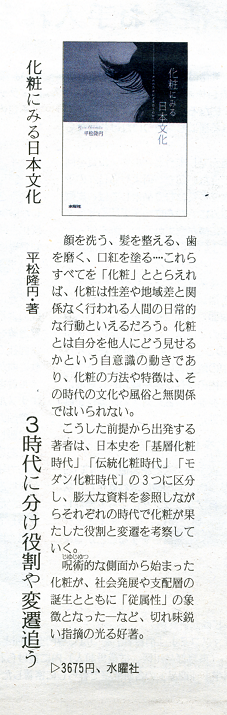 化粧にみる日本文化
平松隆円・著
3時代に分け役割や変遷追う
化粧にみる
日本文化
平松隆円
水曜社
顔を洗う、髪を整える、歯
を磨く、口紅を塗る…これら
すべてを「化粧」ととらえれ
ば、化粧は性差や地域差と関
係なく行われる人間の日常的
な行動といえるだろう。化粧
とは自分を他人にどう見せる
かという自意識の動きであ
り、化粧の方法や特徴は、そ
の時代の文化や風俗と無関係
ではいられない。
こうした前提から出発する
著者は、日本史を「基層化粧
時代」「伝統化粧時代」「モ
ダン化粧時代」の3つに区分
し、膨大な資料を参照しなが
らそれぞれの時代で化粧が果
たした役割と変遷を考察して
いく。
呪術的な側面から始まった
じゅじゅつ
化粧が、社会発展や支配層の
誕生とともに「従属性」の象
徴となった―など、切れ味鋭
い指摘の光る好著。
▷3675円、水曜社